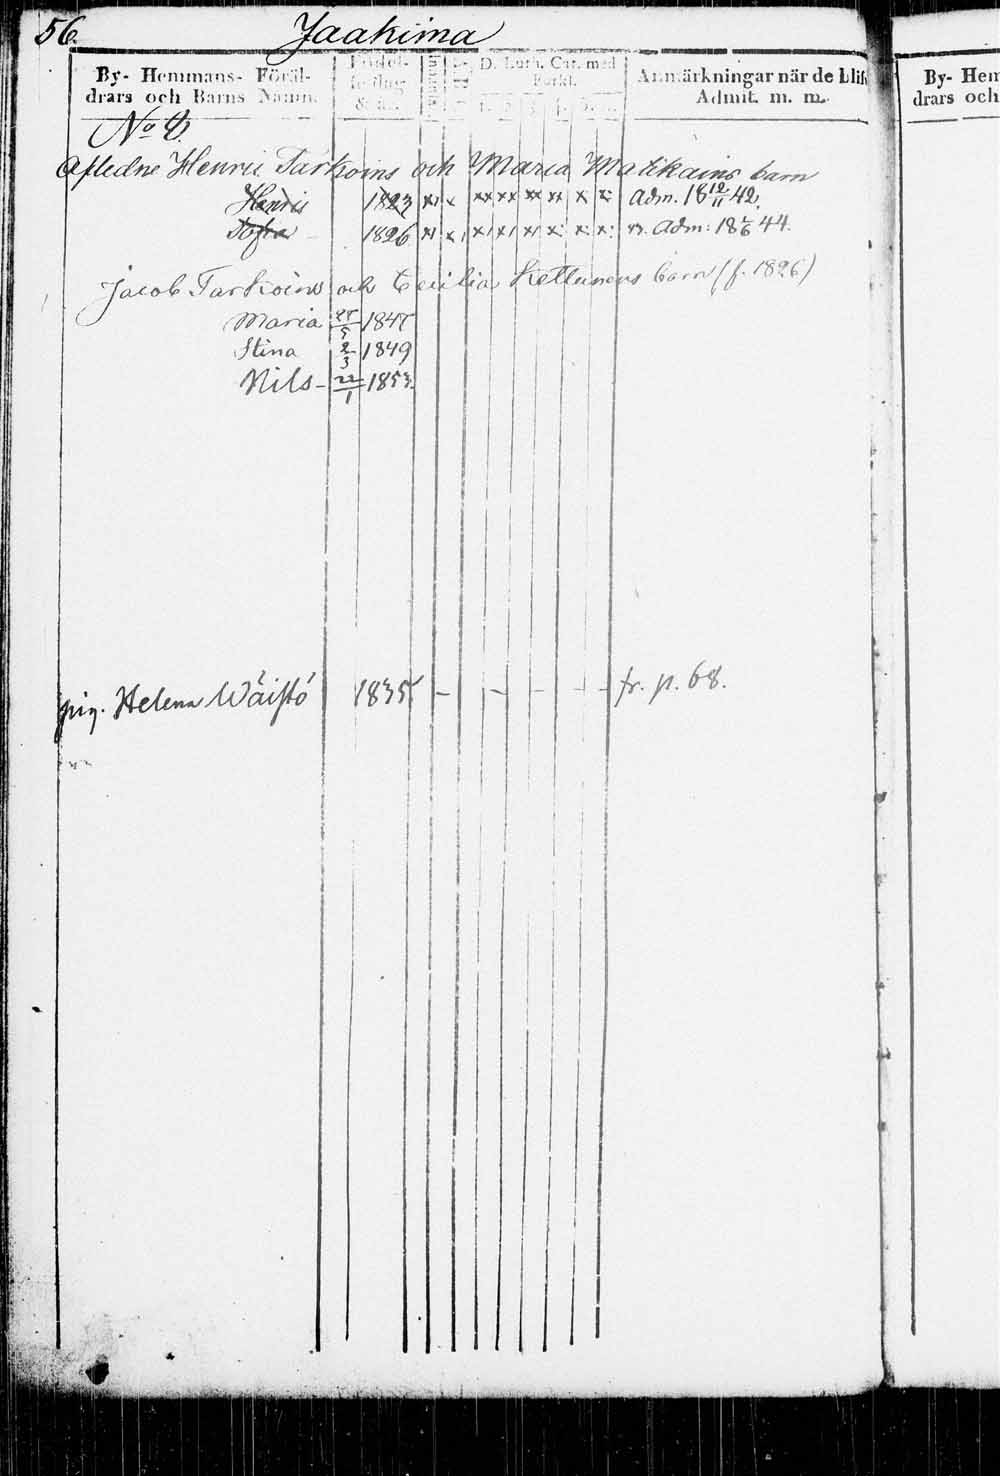 56. Jaakima
By- Hemmans- Föräl-
drars och Barns Namn.
Födel-
sedag
& år.
D. Luth. Cat. med
Förkl.
Anmärkningar när de blifv
Admit. m. m.
By- Hem
drars och
No 8.
Afledne Henric Tarkoins och Maria Matikains barn
Henric 1823 Adm. 18 12/11 42.
Sofia 1826 Adm: 44.
Jacob Tarkoins och Cecilia Kettunens barn (f. 1826)
Maria 1847
Stina 2/3 1849
Nils - 22/1 1853.
pig. Helena Wäistö 1835 - - - - - fr. p. 68.